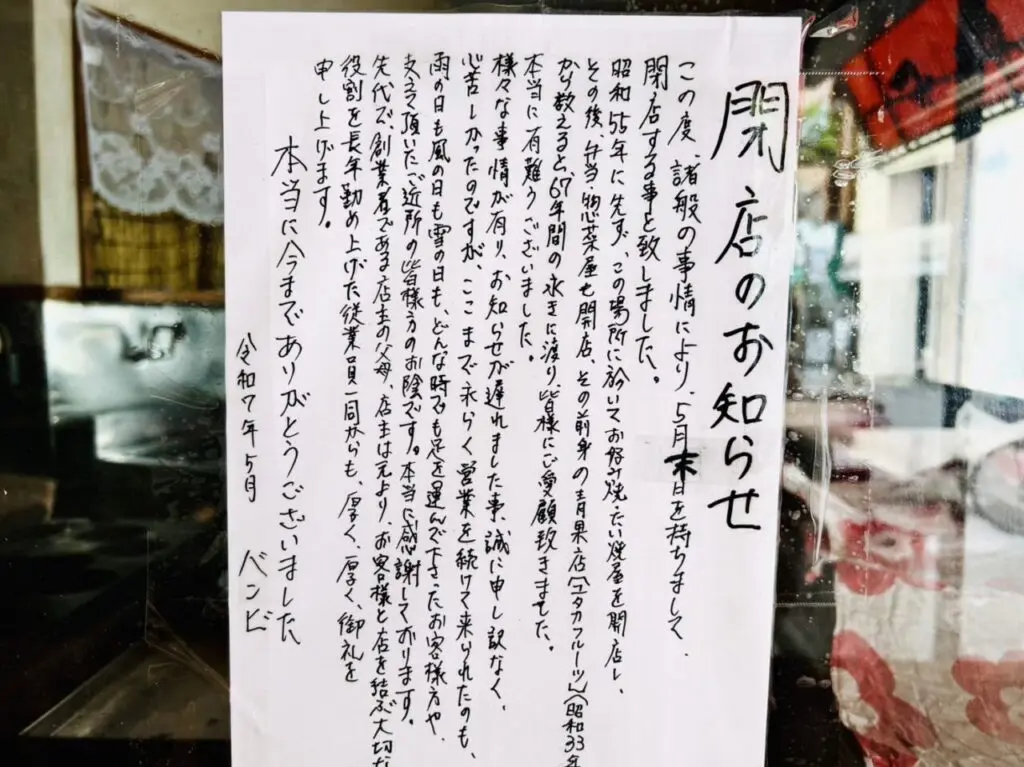 閉店のお知らせ
この度、諸般の事情により、5月末日を持ちまして、
閉店する事と致しました。
昭和55年に先ず、この場所に於いてお好み焼、たい焼屋を開店し、
その後、弁当、惣菜屋も開店、その前身の青果店「ユタカフルーツ」(昭和33年
から数えると、67年間の永きに渡り、皆様にご愛顧致きました。
本当に有難うございました。
様々な事情が有り、お知らせが遅れました事、誠に申し訳なく、
心苦しかったのですが、ここまで永らく営業を続けて来られたのも、
雨の日も風の日も雪の日も、どんな時でも足を運んで下さったお客様方や、
支えて頂いたご近所の皆様方のお陰です。本当に感謝しております。
先代で創業者である店主の父母、店主は元より、お客様と店を結ぶ大切な
役割を長年勤め上げた従業員一同からも、厚く、厚く、御礼を
申し上げます。
本当に今までありがとうございました
令和7年5月 バンビ